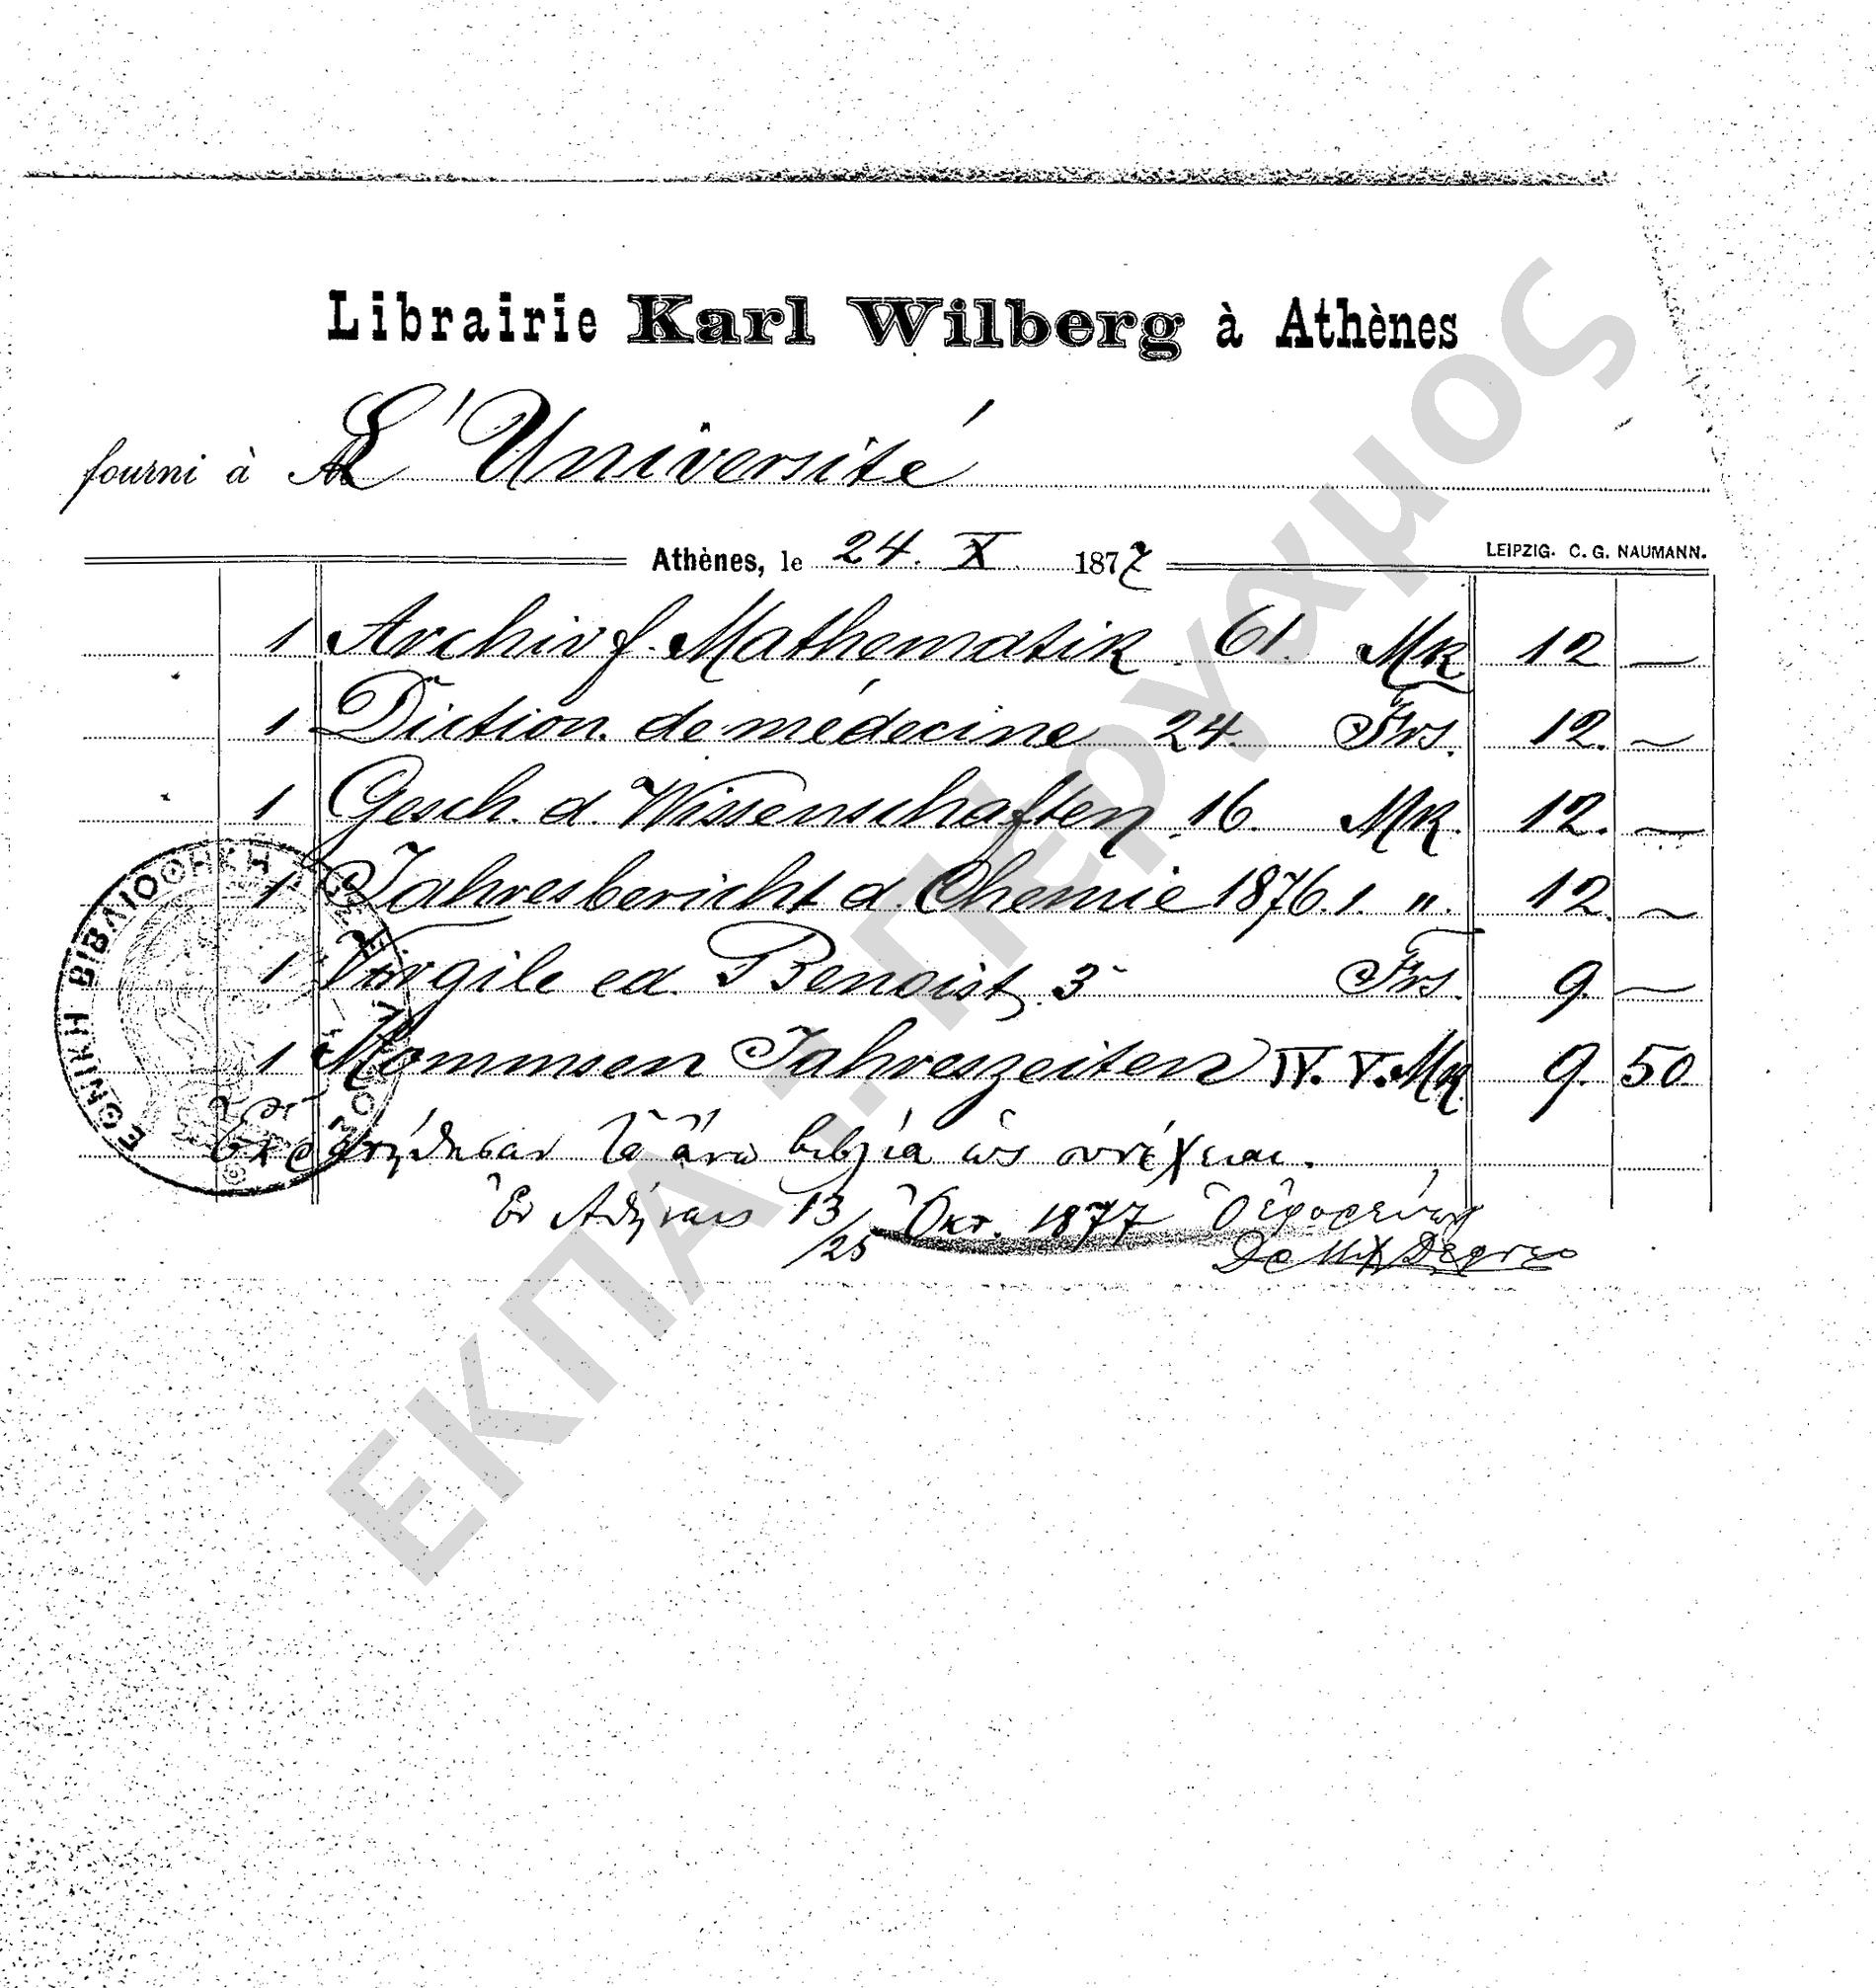 Librairie Karl Wilberg à Athènes
fourni à L'Université
Athènes, le 24. X 1877
LEIPZIG. C. G. NAUMANN.
1 Archiv f. Mathematik. 61. Mk 12 —
1 Diction. de médecine 24. Frs. 12. —
1 Gesch. d. Wissenschaften. 16. Mk. 12. —
1 Jahresbericht d. Chemie 1876. 1. " 12. —
1 Virgile ed. Benoist. 3 Frs. 9. —
1 Mommsen Jahreszeiten IV. V. Mk 9. 50
τὰ ἄνω βιβλία ὡς συνέχειαι.
Ἐν Ἀθήναις 13/25 Ὀκτ. 1877 Ὁ ἐφορεύων
ΕΘΝΙΚΗ ΒΙΒΛΙΟΘΗΚΗ
ΕΚΠΑ Ι. Πέργαμος